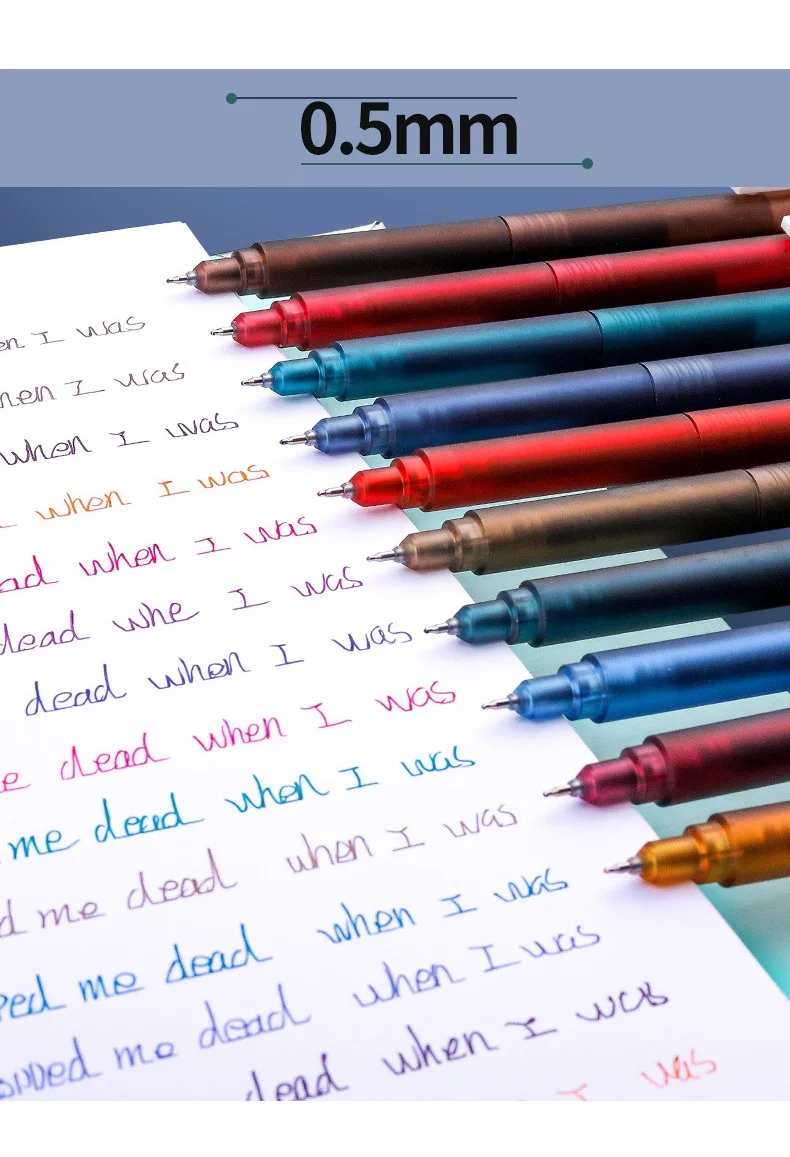 0.5mm
en I was
hen I was
when I was
when I was
ead when I was
dead whe I was
dead when I was
e dead when I was
me dead when I was
d me dead when I was
ped me dead when I was
onded me dead when I was
dead when I was
I was